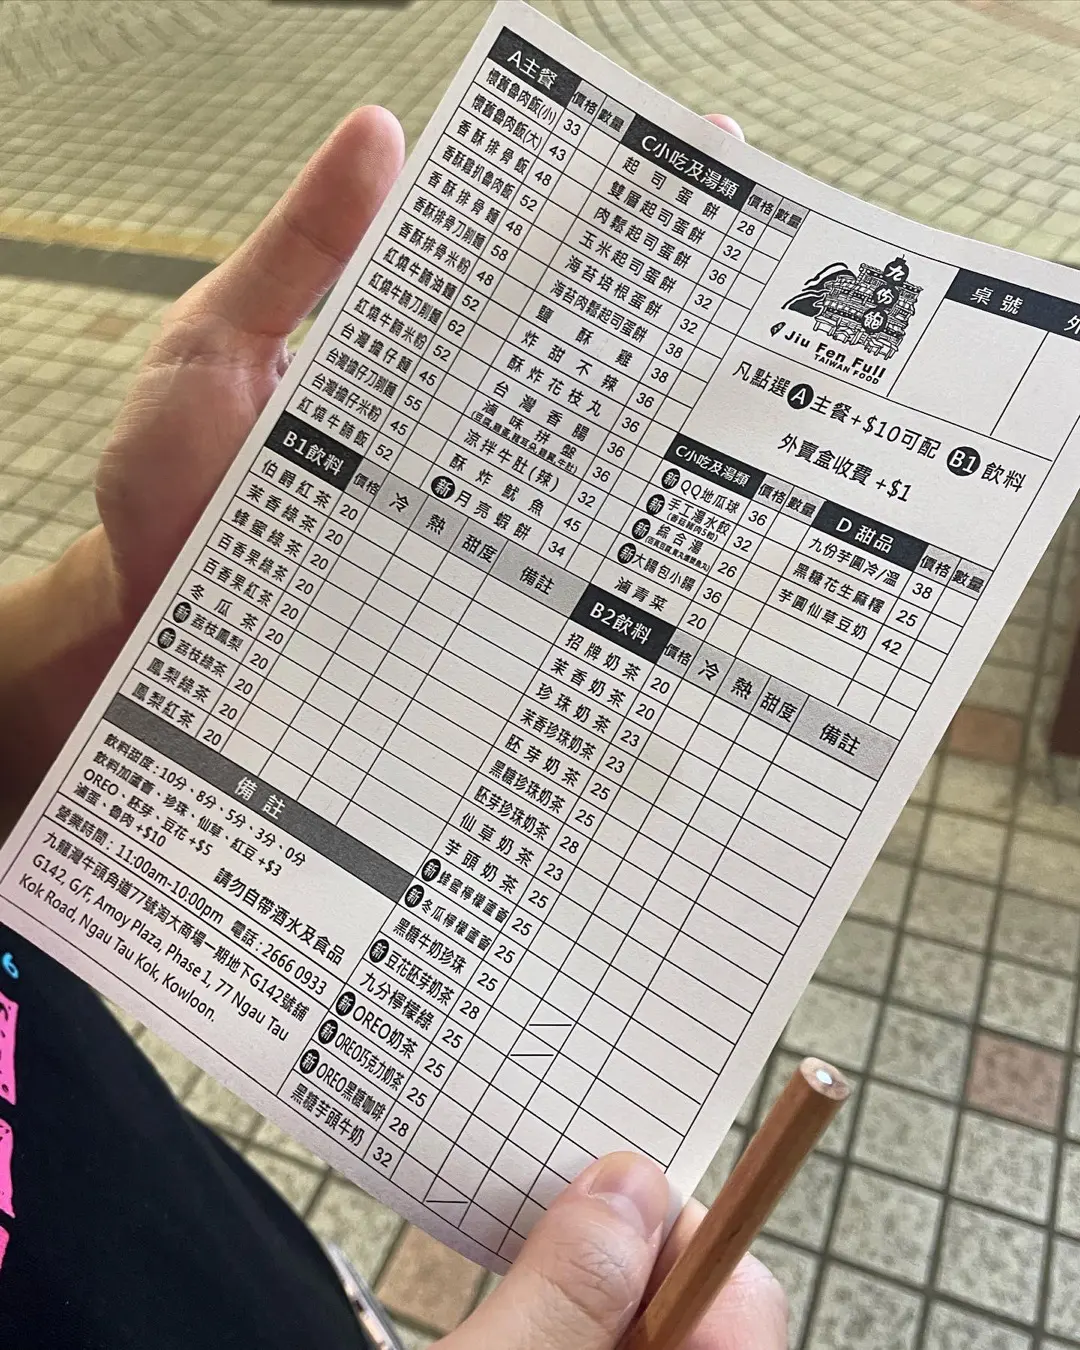 A主餐 價格 數量
懷舊魯肉飯(小) 33
懷舊魯肉飯(大) 43
香酥排骨飯 48
香酥雞扒魯肉飯 52
香酥排骨麵 48
香酥排骨刀削麵 58
香酥排骨米粉 48
紅燒牛腩油麵 52
紅燒牛腩刀削麵 62
紅燒牛腩米粉 52
台灣擔仔麵 45
台灣擔仔刀削麵 55
台灣擔仔米粉 45
紅燒牛腩飯 52
C小吃及湯類 價格 數量
起司蛋餅 28
雙層起司蛋餅 32
肉鬆起司蛋餅 36
玉米起司蛋餅 32
海苔培根蛋餅 32
海苔肉鬆起司蛋餅 38
鹽酥雞 38
炸甜不辣 36
酥炸花枝丸 36
台灣香腸 36
滷味拼盤 36
涼拌牛肚(辣) 32
酥炸魷魚 45
新 月亮蝦餅 34
九份飽
Jiu Fen Full
TAIWAN FOOD
桌號 外
凡點選A主餐+$10可配B1飲料
外賣盒收費+$1
C小吃及湯類 價格 數量
新 QQ地瓜球 36
新 手工湯水餃 32
新 綜合湯 26
新 大腸包小腸 36
滷青菜 20
D甜品 價格 數量
九份芋圓冷/溫 38
黑糖花生麻糬 25
芋圓仙草豆奶 42
B1飲料 價格 冷 熱 甜度 備註
伯爵紅茶 20
茉香綠茶 20
蜂蜜綠茶 20
百香果綠茶 20
百香果紅茶 20
冬瓜茶 20
新 荔枝鳳梨 20
新 荔枝綠茶 20
鳳梨綠茶 20
鳳梨紅茶 20
B2飲料 價格 冷 熱 甜度 備註
招牌奶茶 20
茉香奶茶 20
珍珠奶茶 23
茉香珍珠奶茶 23
胚芽奶茶 25
黑糖珍珠奶茶 25
胚芽珍珠奶茶 28
仙草奶茶 23
芋頭奶茶 25
新 蜂蜜檸檬蘆薈 25
新 冬瓜檸檬蘆薈 25
黑糖牛奶珍珠 25
新 豆花胚芽奶茶 28
九分檸檬綠 25
新 OREO奶茶 25
新 OREO巧克力奶茶 25
新 OREO黑糖咖啡 28
黑糖芋頭牛奶 32
備註
飲料甜度:10分、8分、5分、3分、0分
飲料加蘆薈、珍珠、仙草、紅豆+$3
OREO、胚芽、豆花+$5
滷蛋、魯肉+$10
請勿自帶酒水及食品
營業時間:11:00am-10:00pm 電話:2666 0933
九龍灣牛頭角道77號淘大商場一期地下G142號舖
G142, G/F, Amoy Plaza, Phase 1, 77 Ngau Tau
Kok Road, Ngau Tau Kok, Kowloon.